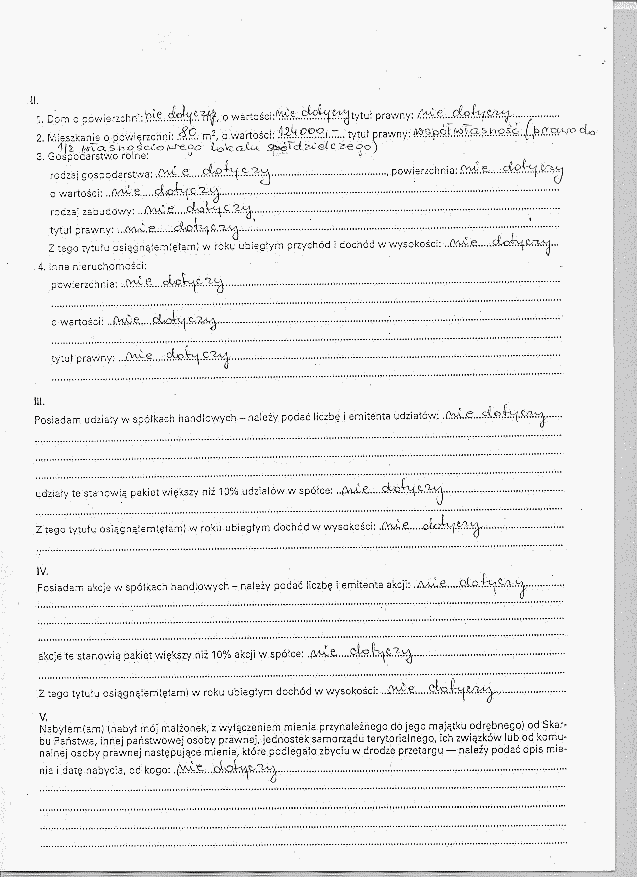 II.
1. Dom o powierzchni: nie dotyczy, o wartości: nie dotyczy tytuł prawny: nie dotyczy
2. Mieszkanie o powierzchni: 80 m², o wartości: 124000,- tytuł prawny: współwłasność (prawo do
1/2 własnościowego lokalu spółdzielczego)
3. Gospodarstwo rolne:
rodzaj gospodarstwa: nie dotyczy, powierzchnia: nie dotyczy
o wartości: nie dotyczy
rodzaj zabudowy: nie dotyczy
tytuł prawny: nie dotyczy
Z tego tytułu osiągnąłem(ęłam) w roku ubiegłym przychód i dochód w wysokości: nie dotyczy
4. Inne nieruchomości:
powierzchnia: nie dotyczy
o wartości: nie dotyczy
tytuł prawny: nie dotyczy
III.
Posiadam udziały w spółkach handlowych – należy podać liczbę i emitenta udziałów: nie dotyczy
udziały te stanowią pakiet większy niż 10% udziałów w spółce: nie dotyczy
Z tego tytułu osiągnąłem(ęłam) w roku ubiegłym dochód w wysokości: nie dotyczy
IV.
Posiadam akcje w spółkach handlowych – należy podać liczbę i emitenta akcji: nie dotyczy
akcje te stanowią pakiet większy niż 10% akcji w spółce: nie dotyczy
Z tego tytułu osiągnąłem(ęłam) w roku ubiegłym dochód w wysokości: nie dotyczy
V.
Nabyłem(am) (nabył mój małżonek, z wyłączeniem mienia przynależnego do jego majątku odrębnego) od Skar-
bu Państwa, innej państwowej osoby prawnej, jednostek samorządu terytorialnego, ich związków lub od komu-
nalnej osoby prawnej następujące mienie, które podlegało zbyciu w drodze przetargu — należy podać opis mie-
nia i datę nabycia, od kogo: nie dotyczy